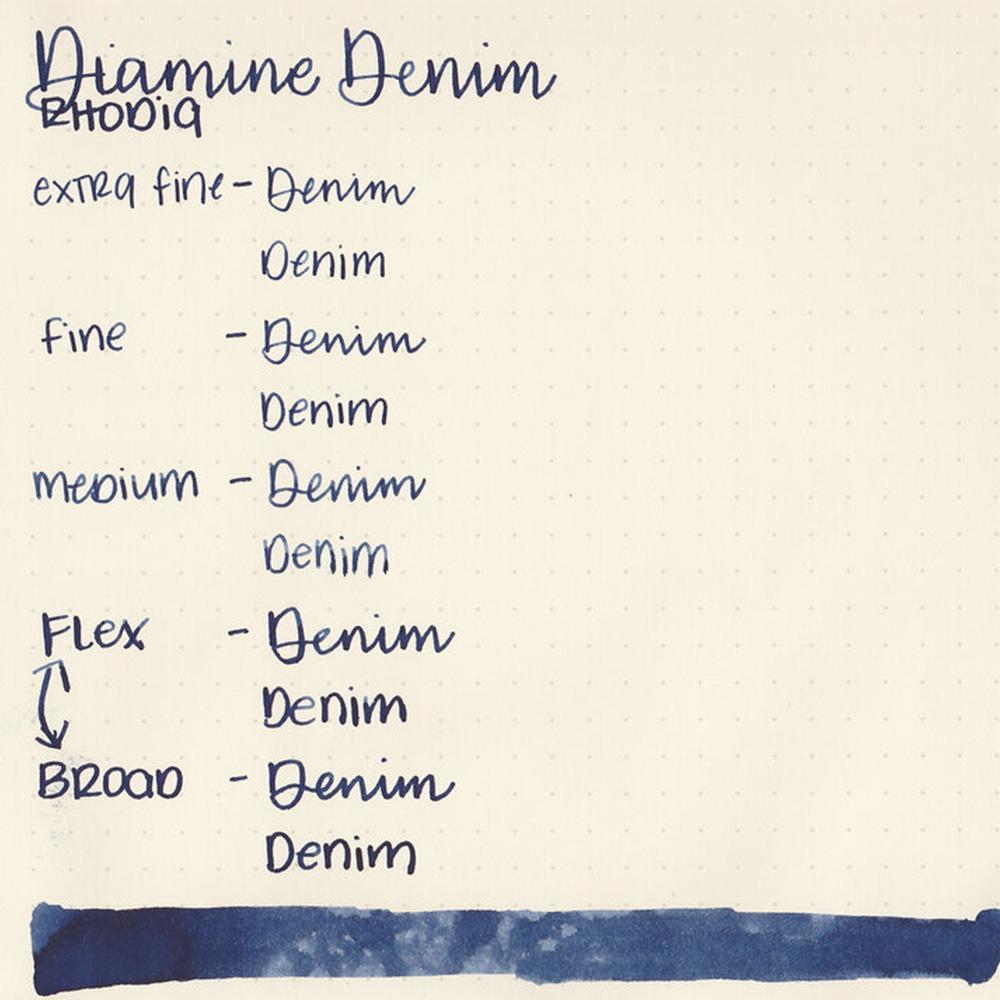 Diamine Denim
RHODIA
extra fine - Denim
Denim
fine - Denim
Denim
medium - Denim
Denim
Flex - Denim
Denim
BROAD - Denim
Denim